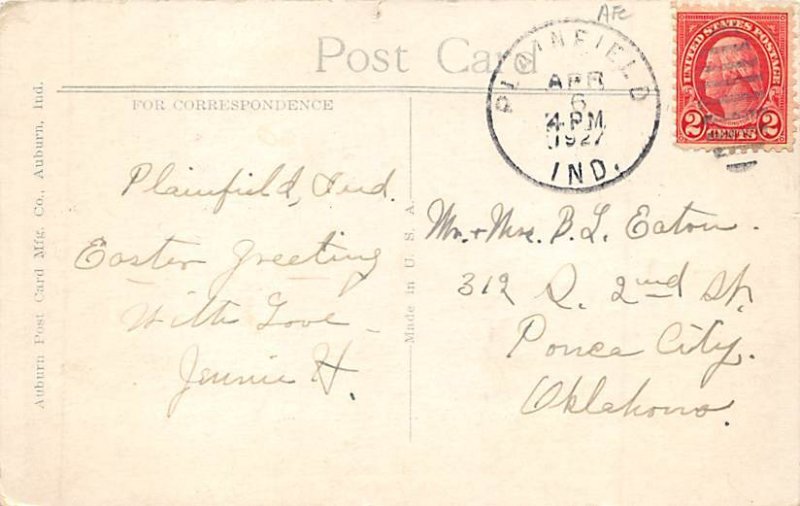 AFC
Post Card
FOR CORRESPONDENCE
PLAINFIELD
APR
6
4 PM
1927
IND.
UNITED STATES POSTAGE
2 CENTS 2
Auburn Post Card Mfg. Co., Auburn, Ind.
Plainfield, Ind.
Easter Greeting
With Love -
Jennie H.
Made in U. S. A.
Mr. + Mrs. B. L. Eaton.
312 S. 2nd St.
Ponca City.
Oklahoma.